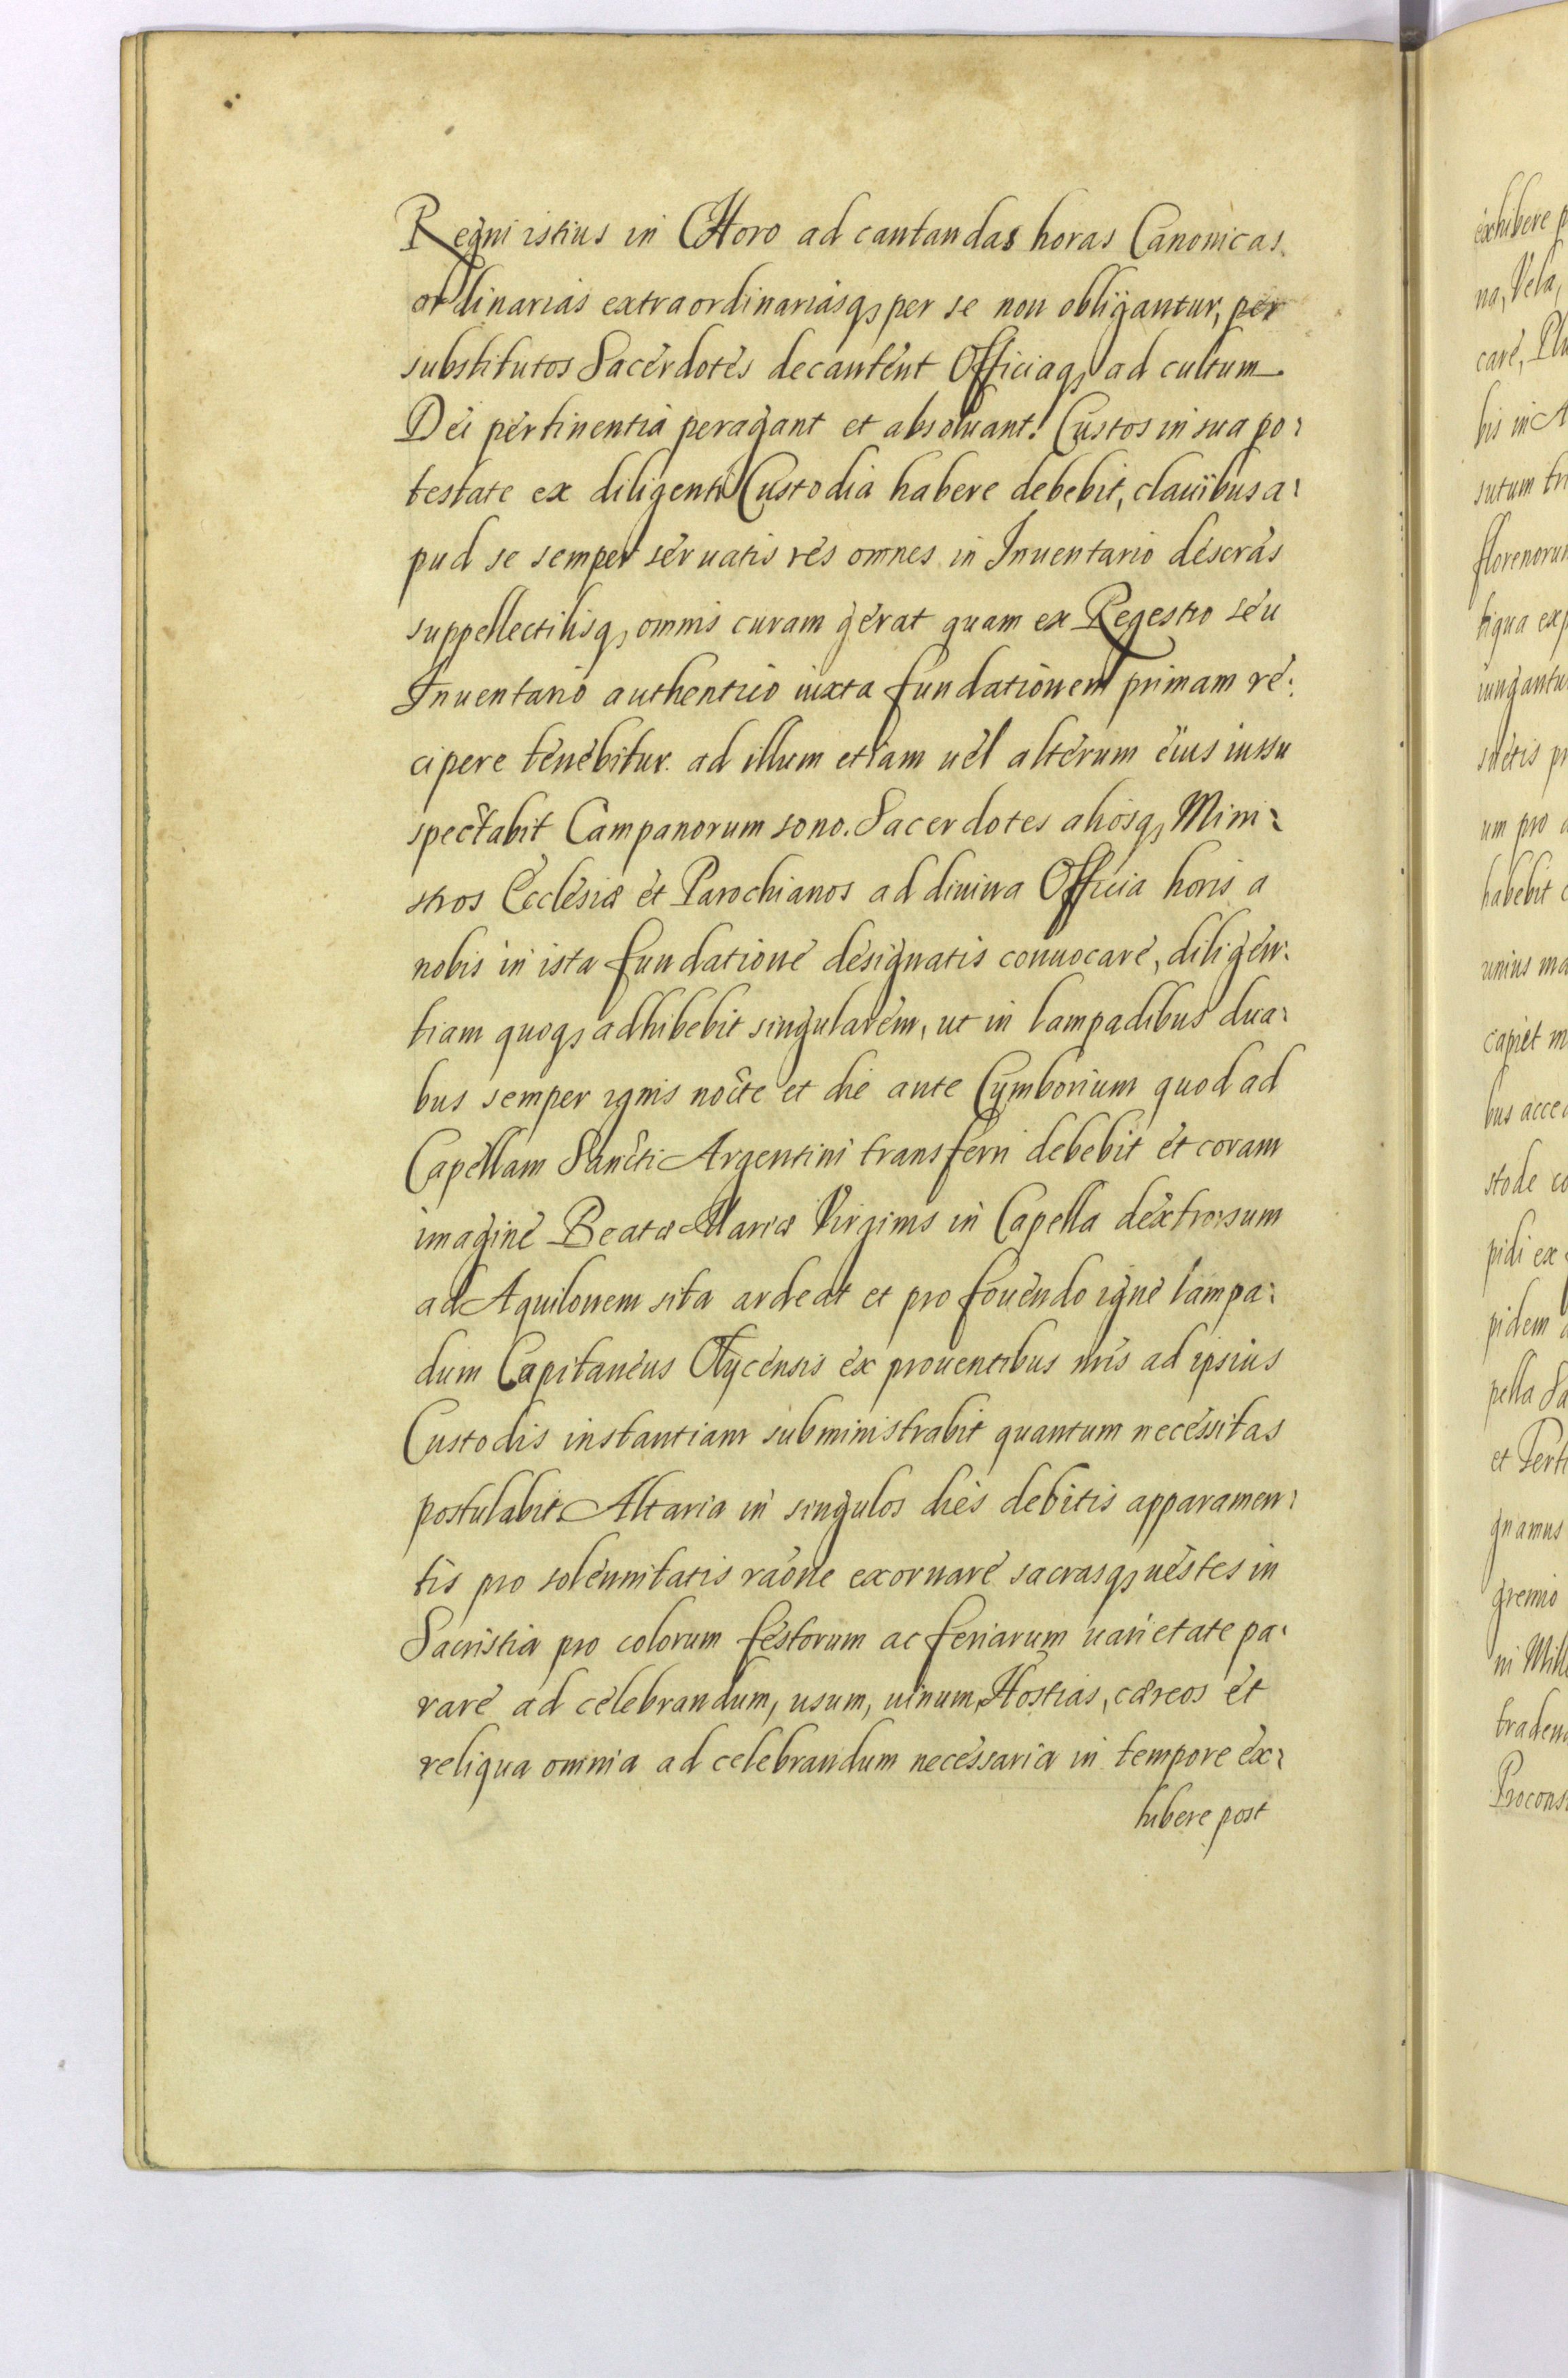 Regni istius in CHoro ad cantandas horas Canonicas
ordinarias extraordinariasq, per se non obligantur, per
substitutos Sacerdotes decantent Officiaq, ad cultum
Dei pertinentia peragant et absoluant. Custos in sua po:
testate ex diligenti Custodia habere debebit, clauibus a:
pud se semper seruatis res omnes in Inuentario descras
suppellectilisq, omnis curam gerat quam ex Regestro seu
Inuentario authentico iuxta fundationem primam re:
cipere tenebitur. ad illum etiam uel alterum eius iussu
spectabit Campanorum sono. Sacerdotes aliosq, Mini:
stros Ecclesiæ et Parochianos ad diuina Officia horis a
nobis in ista fundatione designatis conuocare, diligen:
tiam quoq, adhibebit singularem, ut in lampadibus dua:
bus semper ignis nocte et die ante Cymborium quod ad
Capellam Sancti Argentini transferri debebit et coram
imagine Beatæ Mariæ Virginis in Capella dextrorsum
ad Aquilonem sita ardeat et pro fouendo igne lampa:
dum Capitaneus Olycensis ex prouentibus nris ad ipsius
Custodis instantiam subministrabit quantum necessitas
postulabit. Altaria in singulos dies debitis apparamen:
tis pro solennitatis raone exornare sacrasq, uestes in
Sacristia pro colorum festorum ac feriarum uarietate pa:
rare ad celebrandum, usum, uinum, Hostias, cæreos et
reliqua omnia ad celebrandum necessaria in tempore ex:
hibere post
exhibere
na, Vela,
care,
bis in
sutum
tiqua
um pro
habebit
unius
capiet
stode
pidi ex
pidem
pella
et
gnamus
gremio